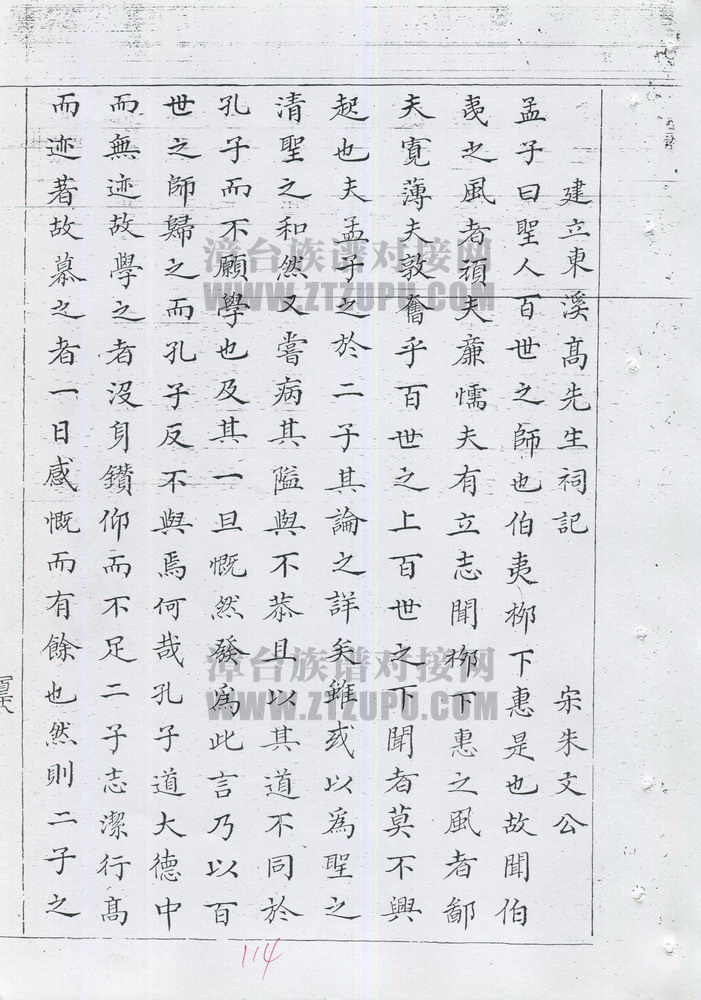 建立東溪髙先生祠記 宋朱文公
孟子曰聖人百世之師也伯夷栁下惠是也故聞伯
夷之風者頑夫亷懦夫有立志聞栁下惠之風者鄙
夫寛薄夫敦奮乎百世之上百世之下聞者莫不興
起也夫孟子之於二子其論之詳矣雖或以爲聖之
清聖之和然又嘗病其隘與不恭且以其道不同於
孔子而不願學也及其一旦慨然發爲此言乃以百
世之師歸之而孔子反不與焉何哉孔子道大德中
而無迹故學之者没身鑽仰而不足二子志潔行髙
而迹著故慕之者一日感慨而有餘也然則二子之
漳台族谱对接网
WWW.ZTZUPU.COM
漳台族谱对接网
WWW.ZTZUPU.COM
114